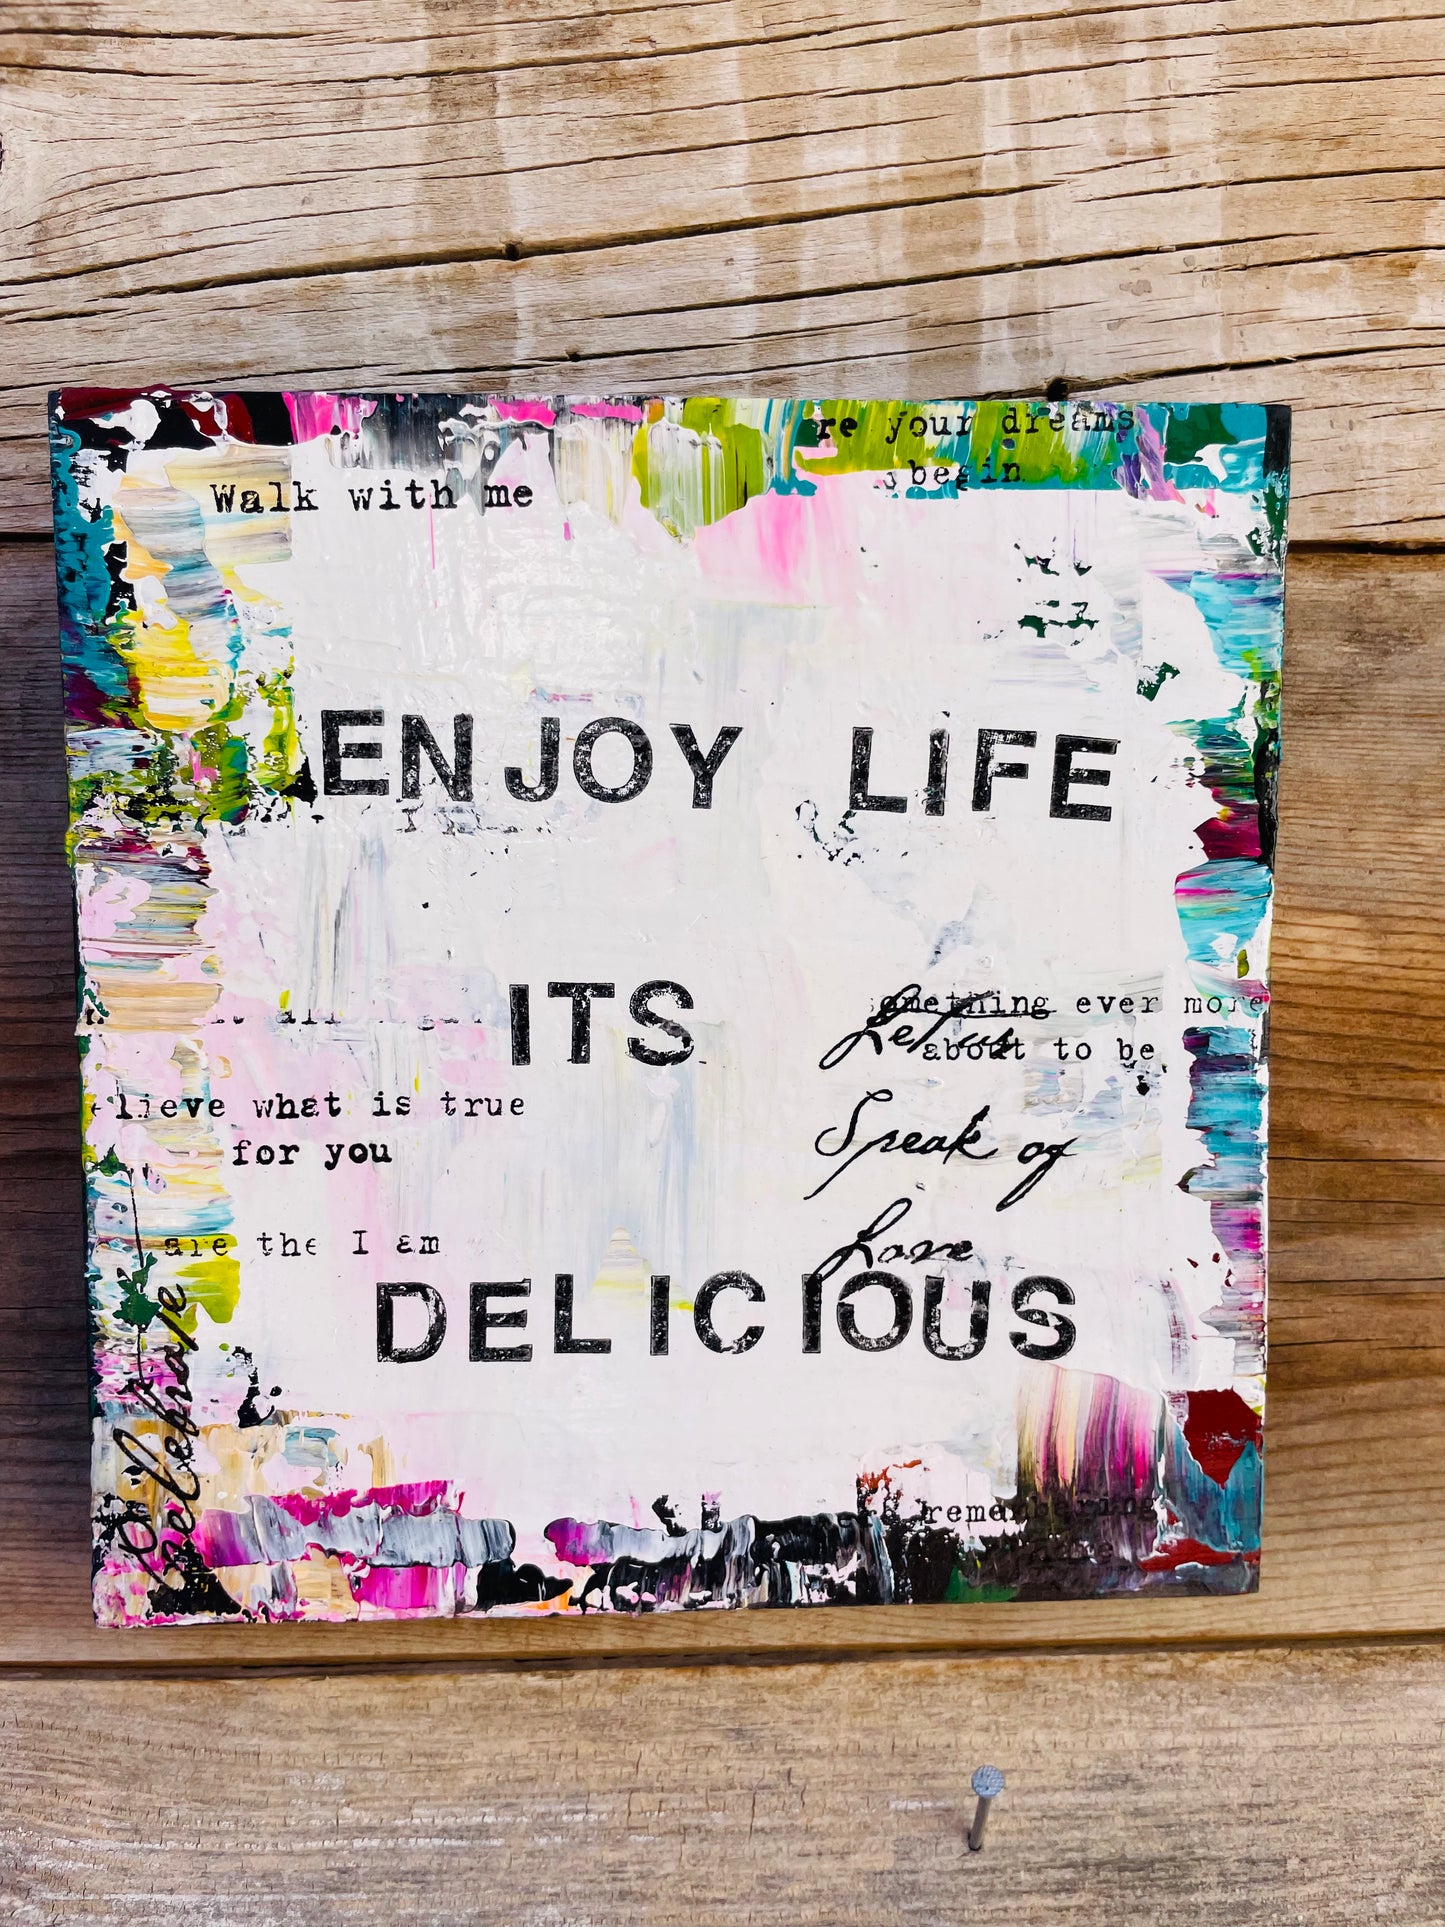 re your dreams
begin
Walk with me
ENJOY LIFE
ITS
something ever more
Let us
about to be
lieve what is true
for you
Speak of
are the I am
Love
DELICIOUS
Celebrate
remembering